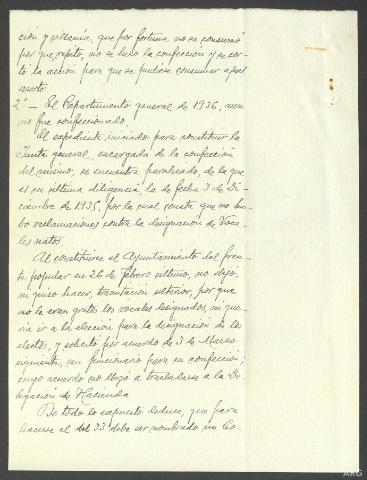 ción y                que por fortuna no se consumó
por que, repito, no se hizo la confección y se cor-
tó la acción para que se pudiera consumar aquel
acerto.
2º — El Repartimiento general de 1936, aun
no fue confeccionado.
El expediente, iniciado para constituir la
Junta general, encargada de la confección
del mismo, se encuentra paralizado, de la que
es su última diligencia, la de fecha 3 de Di-
ciembre de 1935, por la cual consta que no hu-
bo reclamaciones contra la designación de Voca-
les natos.
Al constituirse el Ayuntamiento del Fren-
te popular en 26 de Febrero último, no dejó,
ni quiso hacer, tramitación ulterior, por que
no le eran gratos los vocales designados, ni que-
ría ir a la elección para la designación de los
electos, y solicitó por acuerdo de 3 de Marzo
siguiente, un funcionario para su confección;
cuyo acuerdo no llegó a trasladarse a la De-
legación de Hacienda
De todo lo expuesto deduce, que para
hacerse el del 33 debe ser nombrado un Co-
AKG